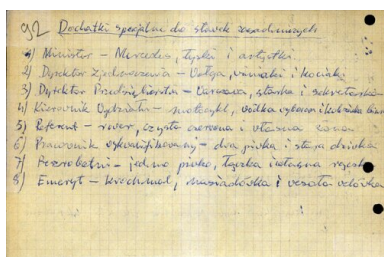 92 Dochatki specjalne do stawek zasadniczych
1) Minister – Mercedes, i artystki
2) Dyrektor Zjednoczenia – Wołga, winiaki i kociaki
3) Dyrektor Przedsiębiorstwa – Warszawa, starka i sekretarka
4) Kierownik Wydziału – motocykl, wódka wyborowa i kobietka
5) Referent – rower, czysta czerwona i własna żona
6) Pracownik wykwalifikowany – dwa piwka i stara dziwka
7) Bezrobotni – jedno piwko, i własna
8) Emeryt – krochmal, nasiadówka i